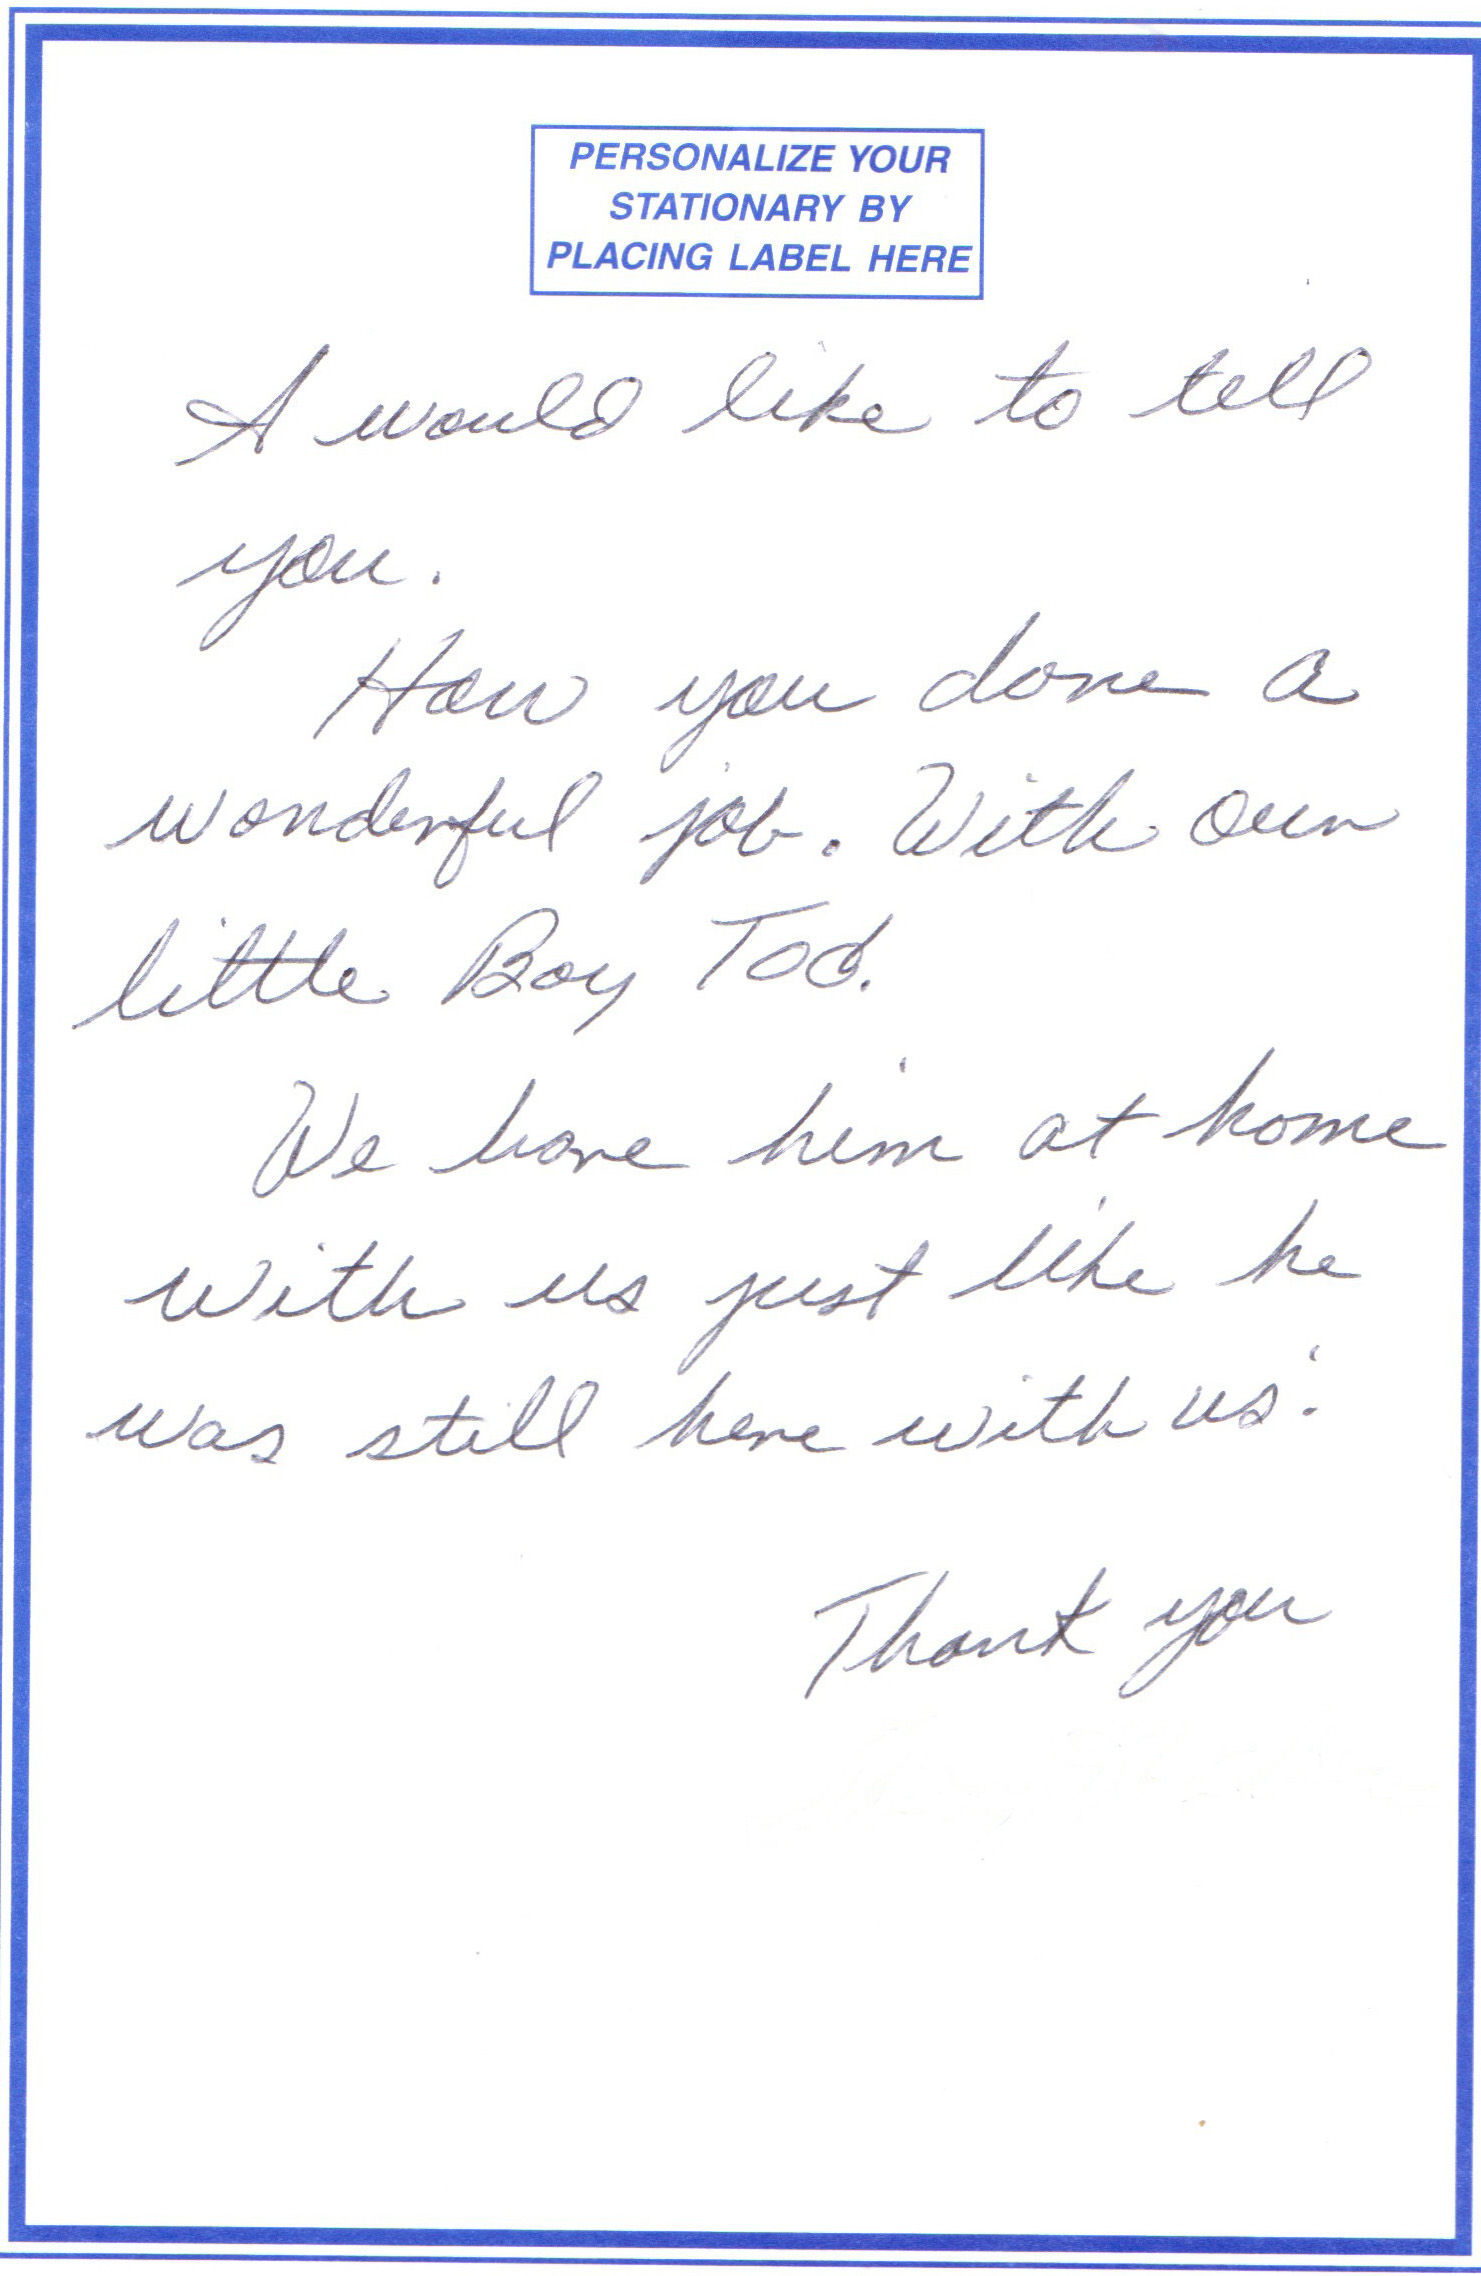 PERSONALIZE YOUR
STATIONARY BY
PLACING LABEL HERE
I would like to tell
you.
How you done a
wonderful job. With our
little Boy Tod.
We have him at home
with us just like he
was still here with us.
Thank you